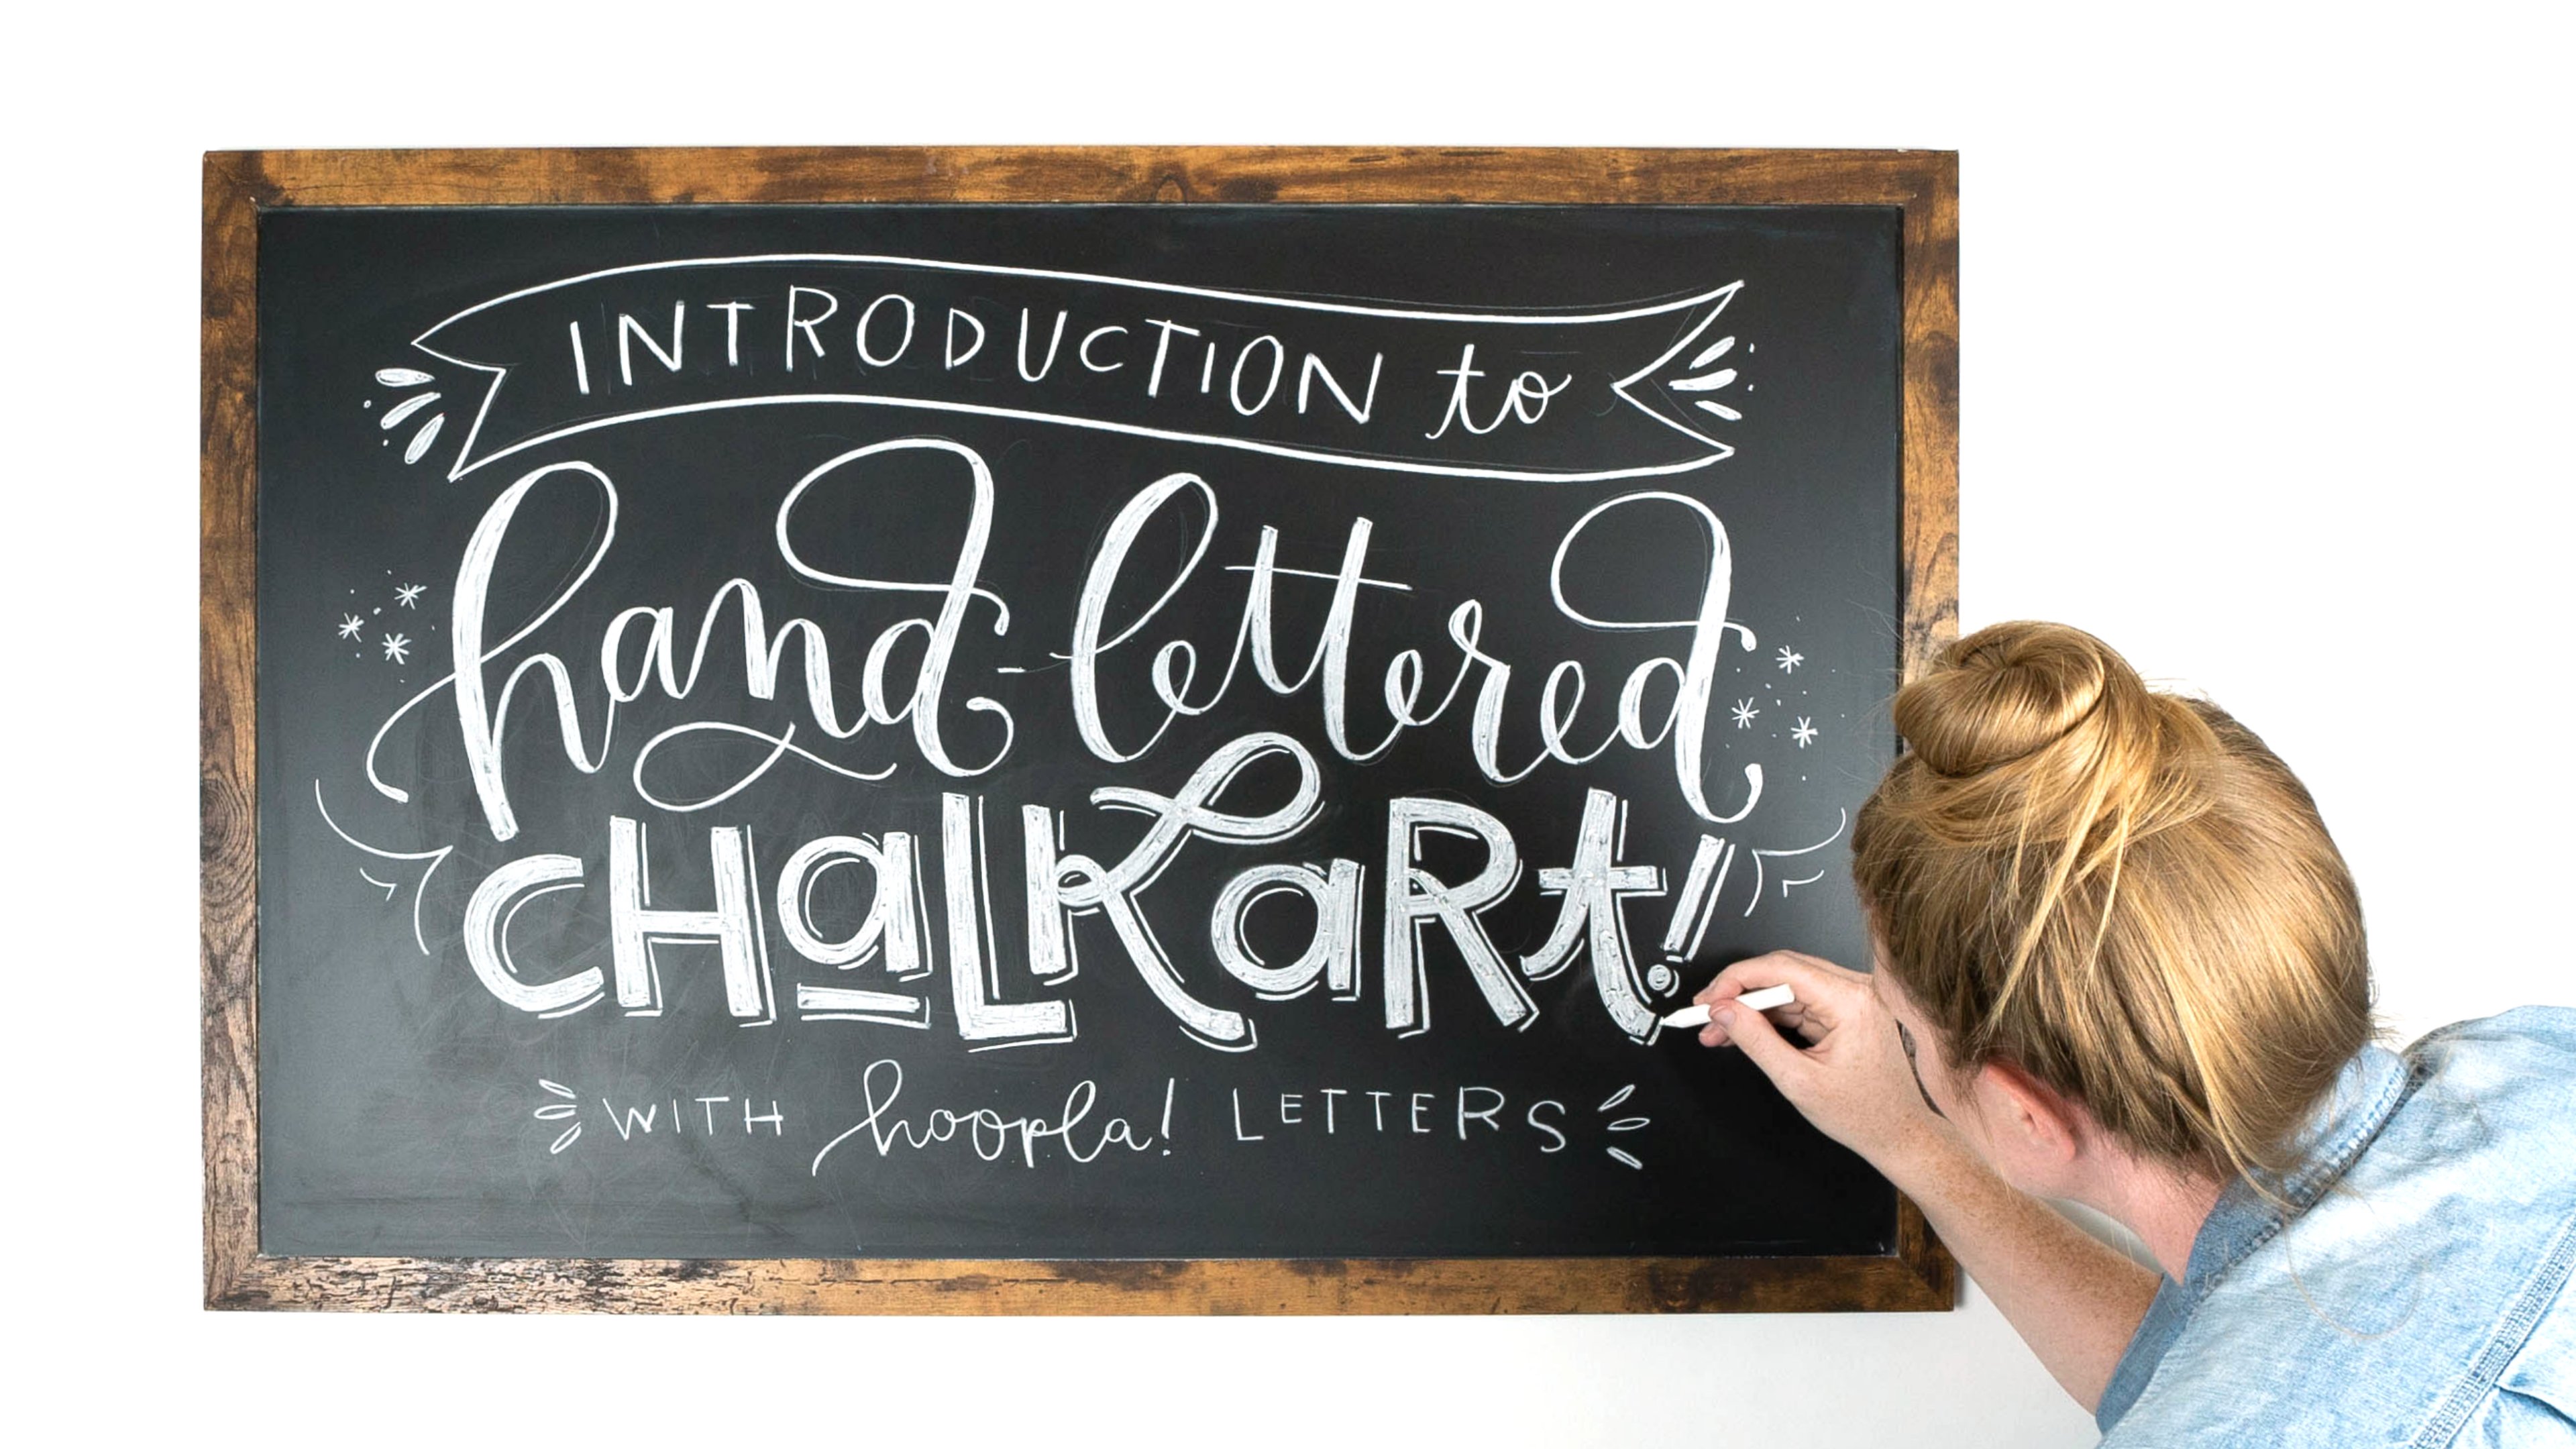 INTRODUCTION to
hand-lettered
CHaLKaRt!
WITH hoopla! LETTERS